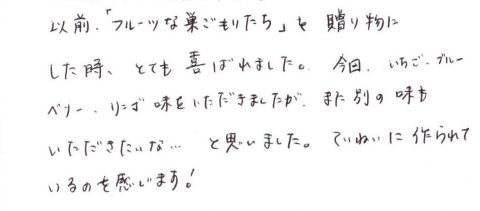 以前、「フルーツな巣ごもりたち」を 贈り物に
した時、とても喜ばれました。今回、いちご、ブルー
ベリー、りんご味をいただきましたが、また別の味も
いただきたいな… と思いました。ていねいに作られて
いるのを感じます!